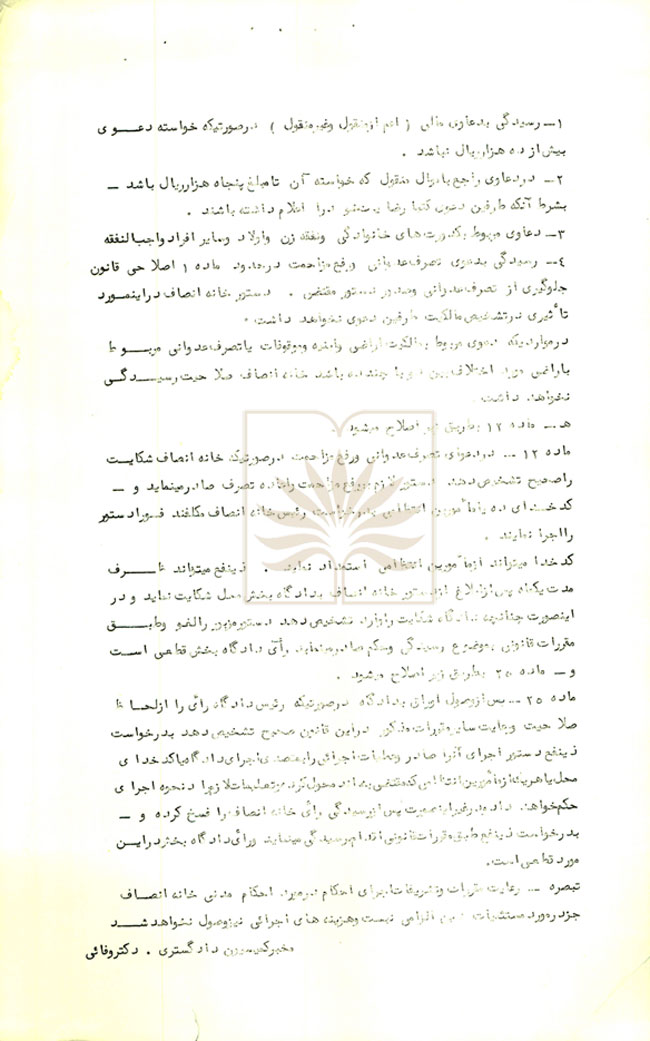 ۱ـ رسیدگی بدعاوی مالی ( اعم ازمنقول وغیرمنقول ) درصورتیکه خواسته دعـــوی
بیش از ده هزارریال نباشد .
۲ـ دردعاوی راجع باموال منقول که خواسته آن تامبلغ پنجاه هزارریال باشد ـ
بشرط آنکه طرفین دعوی کتبا رضایت خود را اعلام داشته باشند .
۳ـ دعاوی مربوط بکدورت های خانوادگی ونفقه زن واولاد وسایر افراد واجب النفقه
۴ـ رسیدگی بدعوی تصرف عدوانی ورفع مزاحمت درحدود ماده ۱ اصلاحی قانون
جلوگیری از تصرف عدوانی وصدور دستور مقتضی . دستور خانه انصاف دراینمورد
تأثیری درتشخیص مالکیت طرفین دعوی نخواهد داشت .
درمواردیکه دعوی مربوط بمالکیت اراضی وابنیه وموقوفات یاتصرف عدوانی مربـــوط
باراضی مورد اختلاف بین دو یا چند ده باشد خانه انصاف صلاحیت رسیـــدگـی
نخواهد داشت .
هـ ـ ماده ۱۲ بطریق زیر اصلاح میشود .
ماده ۱۲ ـ دردعوای تصرف عدوانی ورفع مزاحمت درصورتیکه خانه انصاف شکایت
راصحیح تشخیص دهد دستور لازم برفع مزاحمت واعاده تصرف صادرمینماید و ـ
کدخدای ده یامأمورین انتظامی بدرخواست رئیس خانه انصاف مکلفند فورا دستور
رااجرا نمایند .
کدخدا میتواند ازمأمورین انتظامی استمداد نماید . ذینفع میتواند ظـــرف
مدت یکماه پس ازابلاغ ازدستور خانه انصاف بدادگاه بخش محل شکایت نماید و در
اینصورت چنانچه دادگاه شکایت راوارد تشخیص دهد دستورمزبور رالغو وطبـــق
مقررات قانونی بموضوع رسیدگی وحکم صادرمینماید رأی دادگاه بخش قطعی است
و ـ ماده ۲۵ بطریق زیر اصلاح میشود .
ماده ۲۵ ـ پس ازوصول اوراق بدادگاه درصورتیکه رئیس دادگاه رأی را ازلحـاظ
صلاحیت ورعایت سایرمقررات مذکور دراین قانون صحیح تشخیص دهد بدرخواست
ذینفع دستور اجرای آنرا صادر وعملیات اجرائی رابمتصدی اجرای دادگاه یاکدخدای
محل یاهریک ازمأمورین انتظامی که مقتضی بداند محول کرده وتعلیمات لازم را درنحوه اجرای
حکم خواهد داد درغیراینصورت پس ازرسیدگی رأی خانه انصاف را فسخ کرده و ـ
بدرخواست ذینفع طبق مقررات قانونی اقدام برسیدگی مینماید ورأی دادگاه بخش دراین
مورد قطعی است.
تبصره ـ رعایت مقررات وتشریفات اجرای احکام درمورد احکام مدنی خانه انصاف
جزدرمورد مستثنیات دین الزامی نیست وهزینه های اجرائی نیزوصول نخواهد شـــد
مخبرکمیسیون دادگستری . دکتروفائی